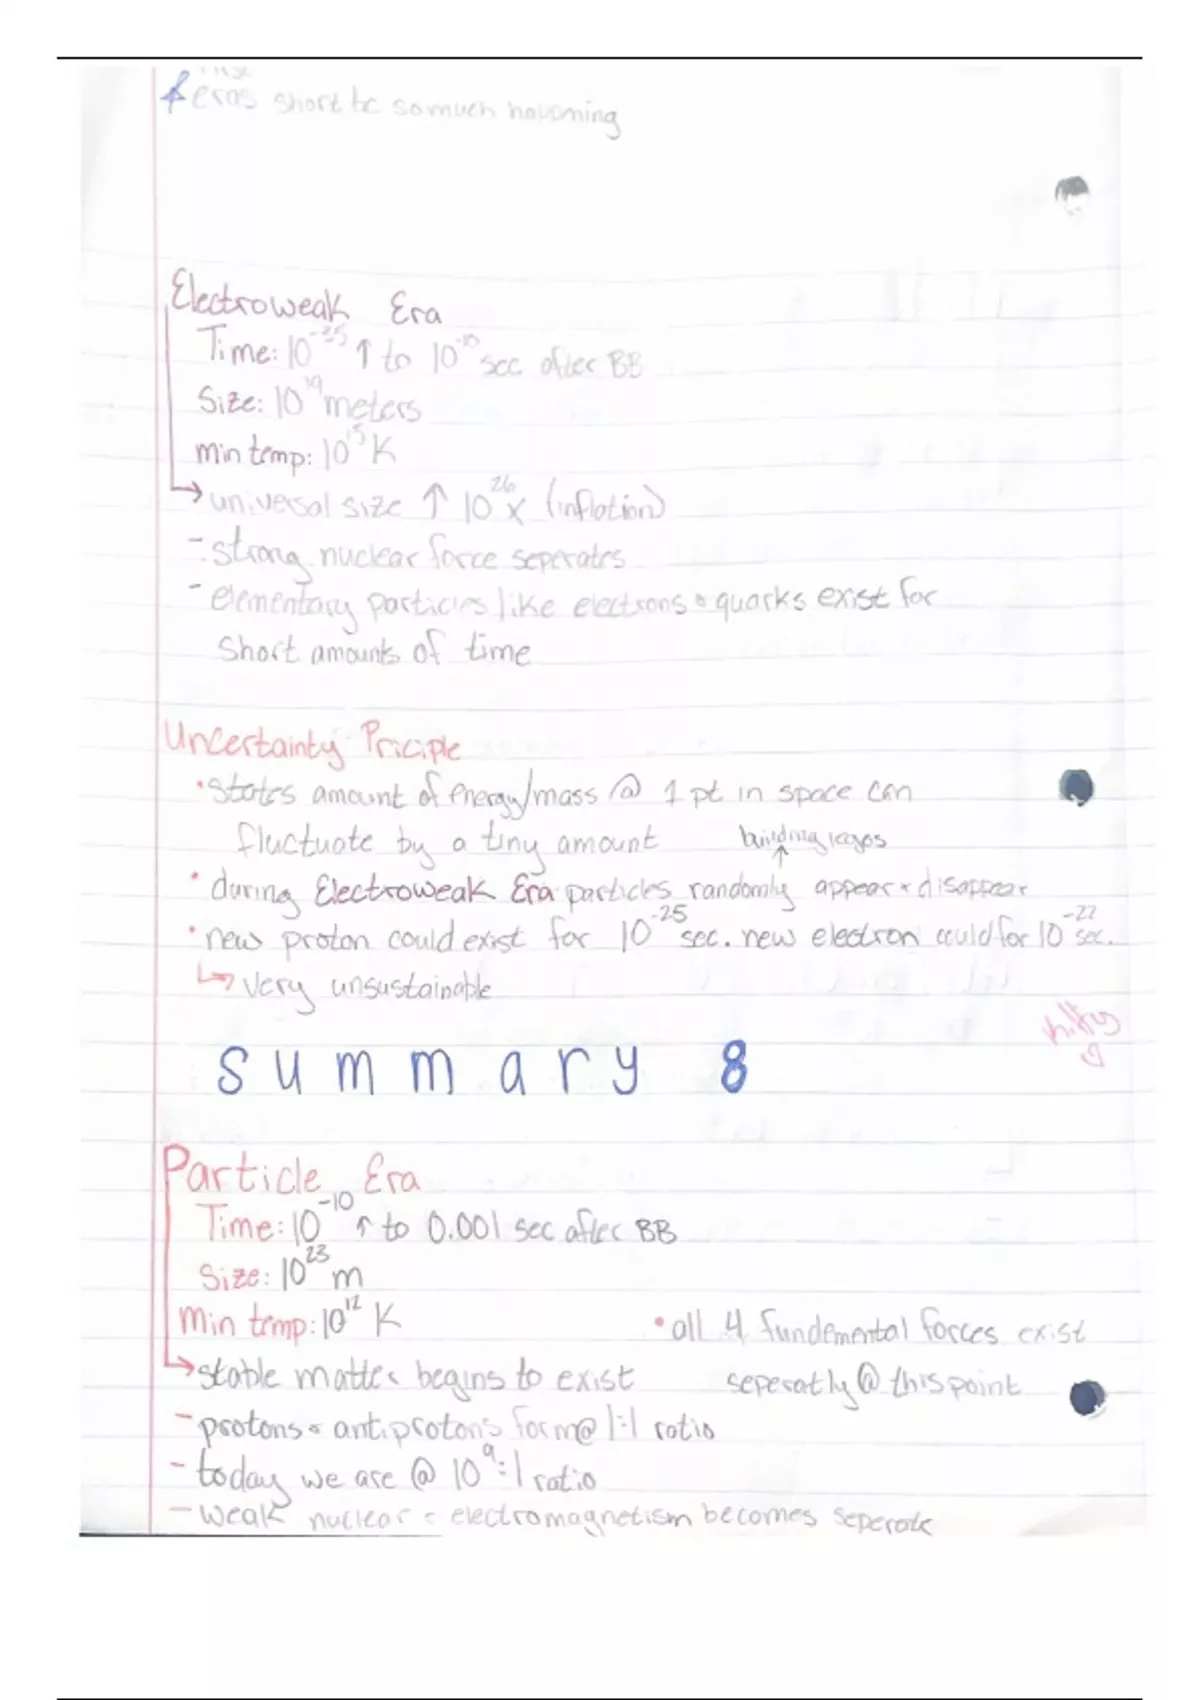 eras short bc so much happening
Electroweak Era
Time: 10^-35 ↑ to 10^-10 sec after BB
Size: 10^19 meters
min temp: 10^15 K
→ universal size ↑ 10^26 x (inflation)
- strong nuclear force seperates
- elementary particles like electrons & quarks exist for
short amounts of time
Uncertainty Priciple
• states amount of energy/mass @ 1 pt in space can
fluctuate by a tiny amount
building legos
• during Electroweak Era particles randomly appear & disappear
• new proton could exist for 10^-25 sec. new electron could for 10^-22 sec.
↳ very unsustainable
summary 8
Particle Era
Time: 10^-10 ↑ to 0.001 sec after BB
Size: 10^23 m
Min temp: 10^12 K
• all 4 fundemental forces exist
seperatly @ this point
→ stable matter begins to exist
- protons & antiprotons form @ 1:1 ratio
- today we are @ 10^9:1 ratio
- weak nuclear & electromagnetism becomes seperate